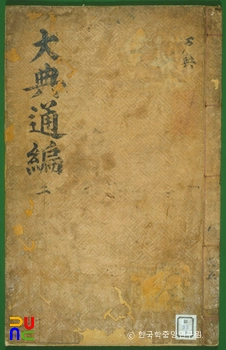 大典通編 二
© 한국학중앙연구원